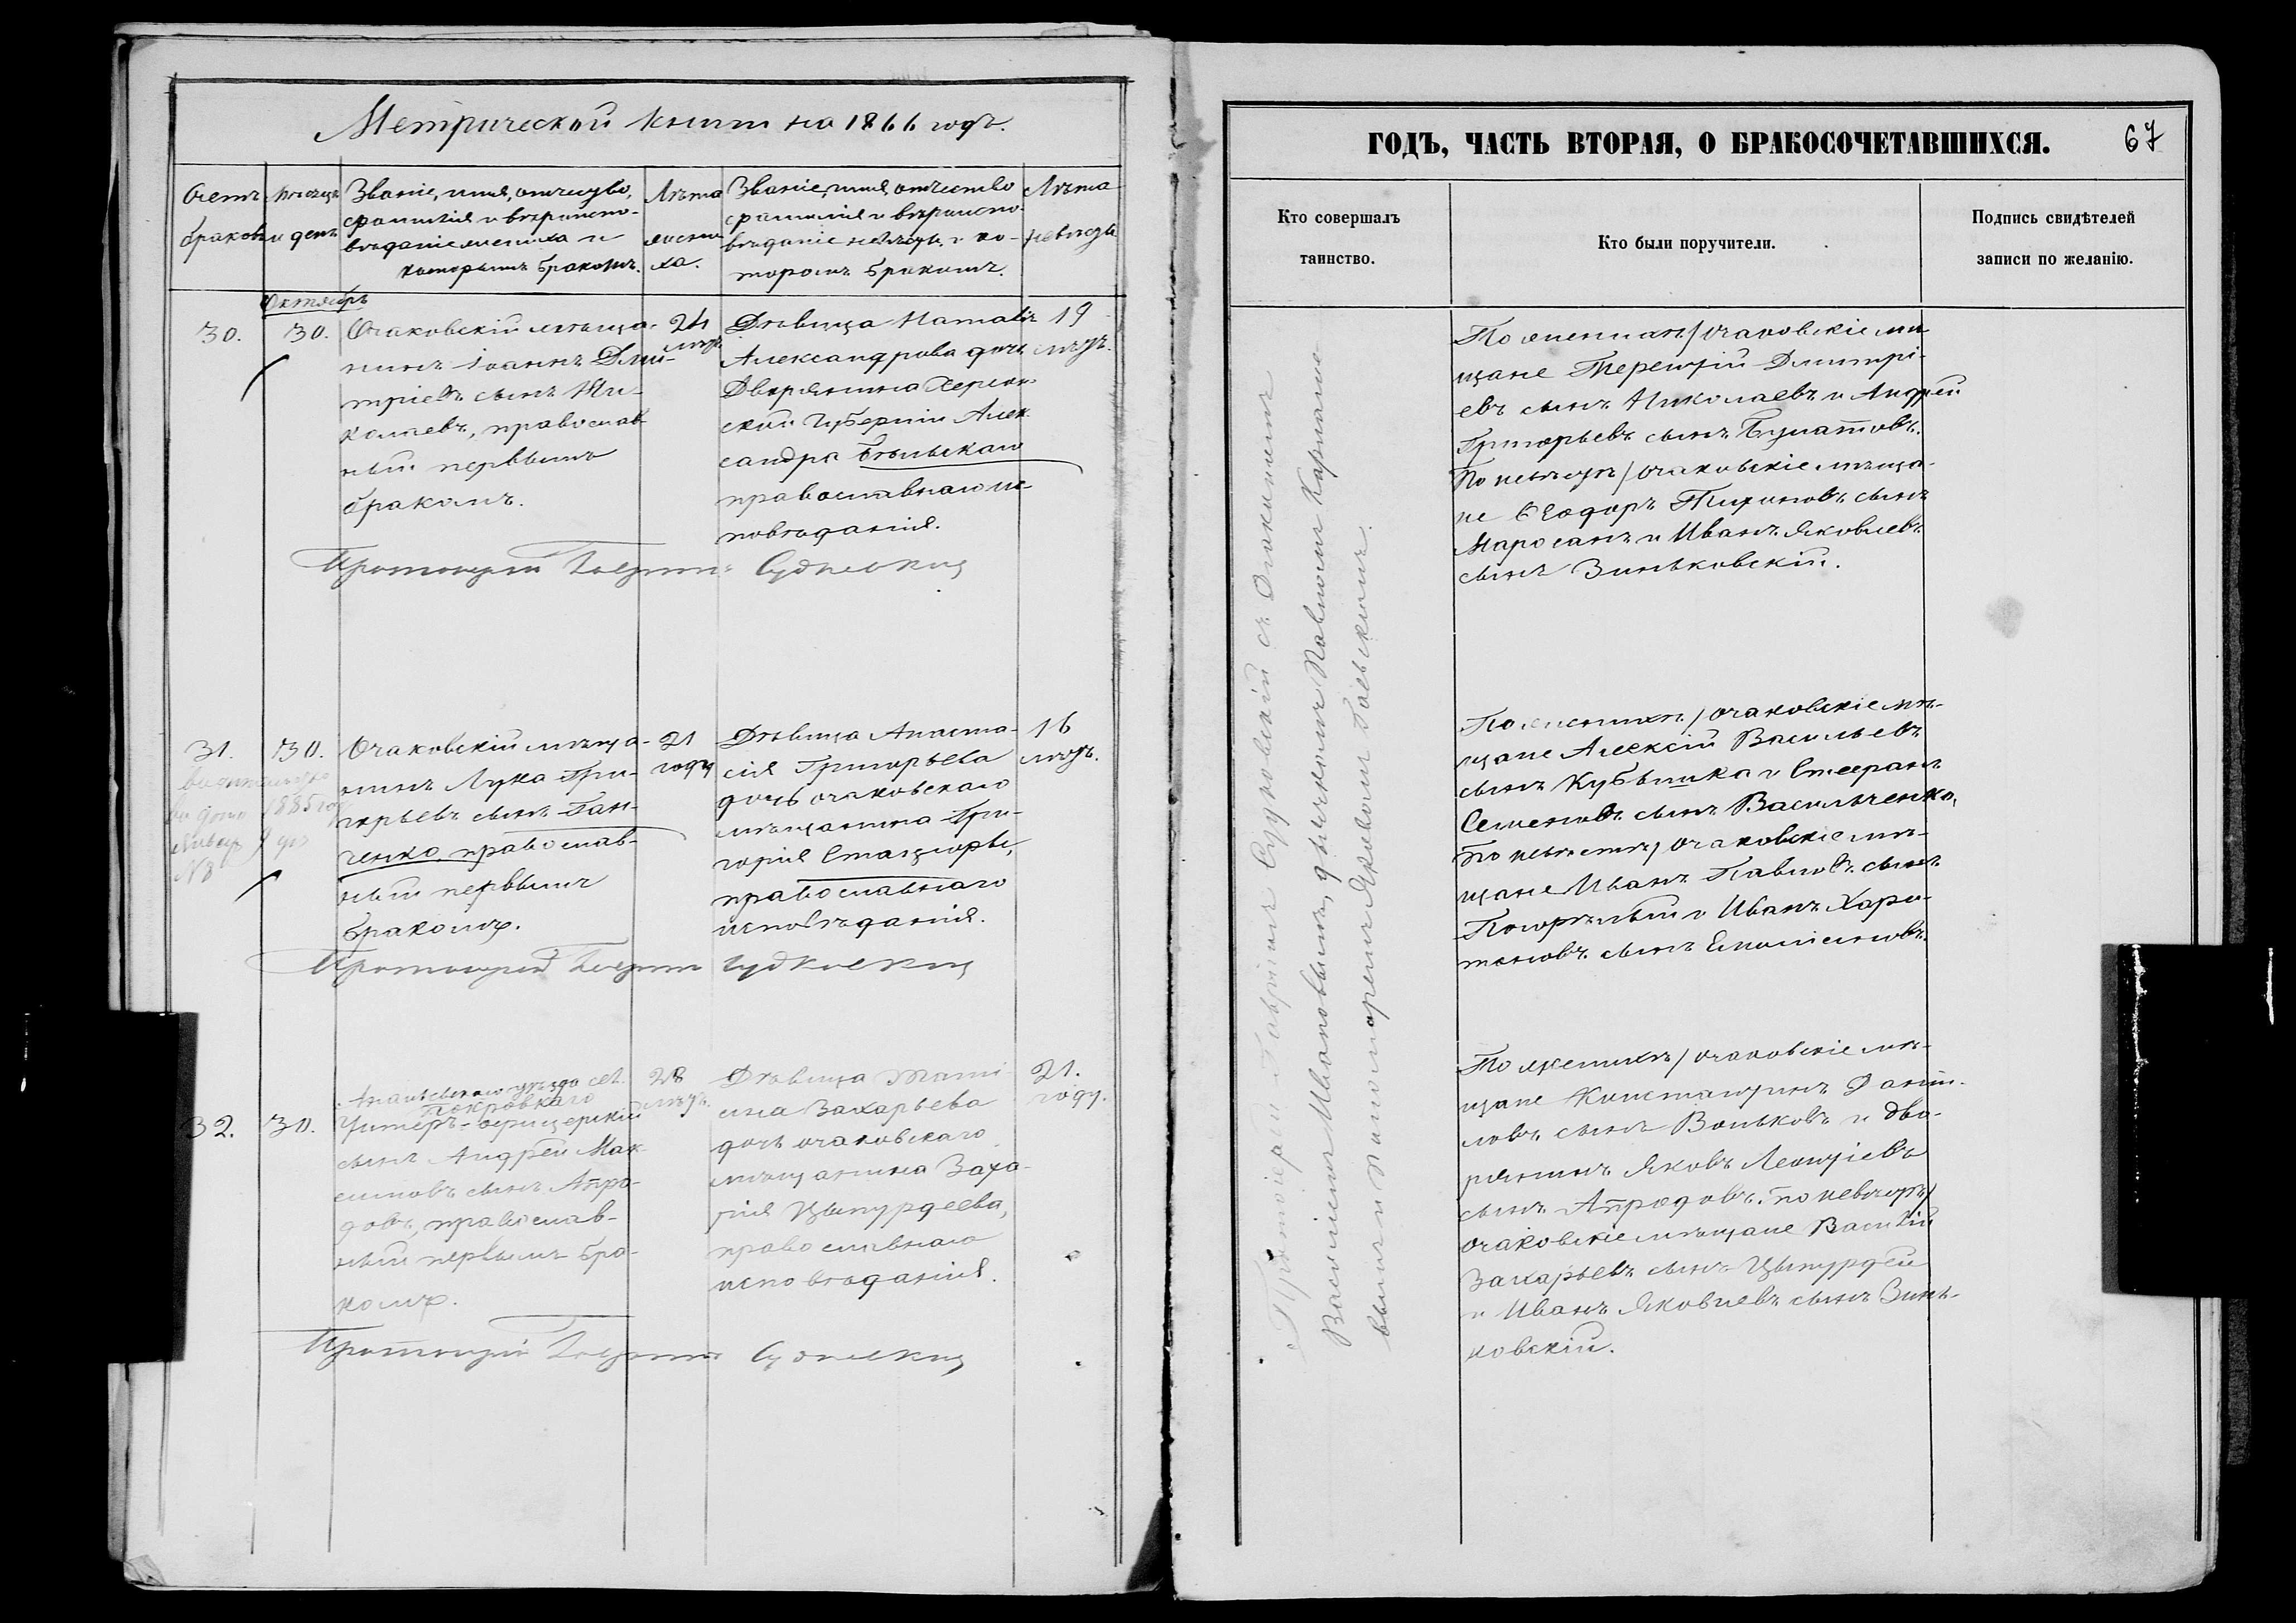 Метрической книги на 1866 годъ.
Счетъ браковъ
Мѣсяцъ и день
Званіе, имя, отчество,
фамилія и вѣроиспо-
вѣданіе жениха и
которымъ бракомъ.
Лѣта
жени-
ха.
Званіе, имя, отчество
фамилія и вѣроиспо-
вѣданіе невѣсты и ко-
торымъ бракомъ.
Лѣта
невѣсты
Октябрь
30.
30.
Очаковскій мѣща-
нинъ Іоаннъ Дми-
тріевъ сынъ Ни-
колаевъ, православ-
ный первымъ
бракомъ.
24
лѣтъ
Дѣвица Наталія
Александрова дочь
Дворянина Херсон-
ской Губерніи Алек
сандра Бѣльскаго
православнаго ис-
повѣданія.
19
лѣтъ.
Протоіерей Гавріилъ Судковскій
31.
30.
1885 го
Очаковскій мѣща-
нинъ Лука Гри-
горьевъ сынъ Ган-
ченко, православ-
ный первымъ
бракомъ.
21
годъ
Дѣвица Анаста-
сія Григорьева
дочь очаковскаго
мѣщанина Гри-
горія
православнаго
исповѣданія.
16
лѣтъ.
Протоіерей Гавріилъ Судковскій
32.
30.
Ананьевскаго уѣзда сел.
Покровскаго
Унтеръ-офицерскій
сынъ Андрей Мак-
симовъ сынъ Апро-
довъ, православ-
ный первымъ бра-
комъ.
28
лѣтъ.
Дѣвица Тати-
яна Захарьева
дочь очаковскаго
мѣщанина Заха-
рія Цынурдеева,
православнаго
исповѣданія.
21.
годъ.
Протоіерей Гавріилъ Судковскій
ГОДЪ, ЧАСТЬ ВТОРАЯ, О БРАКОСОЧЕТАВШИХСЯ.
67
Кто совершалъ
таинство.
Кто были поручители.
Подпись свидѣтелей
записи по желанію.
Протоіерей Гавріилъ Судковскій съ Діакономъ
Василіемъ Ивановымъ, дьячкомъ Павломъ
вымъ и пономаремъ Яковомъ
По женихѣ / очаковскіе мѣ-
щане Терентій Дмитрі-
евъ сынъ Николаевъ и Андрей
Григорьевъ сынъ Булатовъ.
По невѣстѣ / очаковскіе мѣща-
не Ѳеодоръ сынъ
и Иванъ Яковлевъ
сынъ Зиньковскій.
По женихѣ / очаковскіе мѣ-
щане Алексій Васильевъ
сынъ Кубышка и Стефанъ
Семеновъ сынъ Васильченко,
По невѣстѣ / очаковскіе мѣ-
щане Иванъ Павловъ сынъ
Погорѣлый и Иванъ Хари-
тоновъ сынъ
По женихѣ / очаковскіе мѣ-
щане Константинъ Дани-
ловъ сынъ Волковъ и дво-
рянинъ Яковъ Леонтіевъ
сынъ Апродовъ. По невѣстѣ /
очаковскіе мѣщане Василій
Захарьевъ сынъ Цынурдей
и Иванъ Яковлевъ сынъ Зинь-
ковскій.